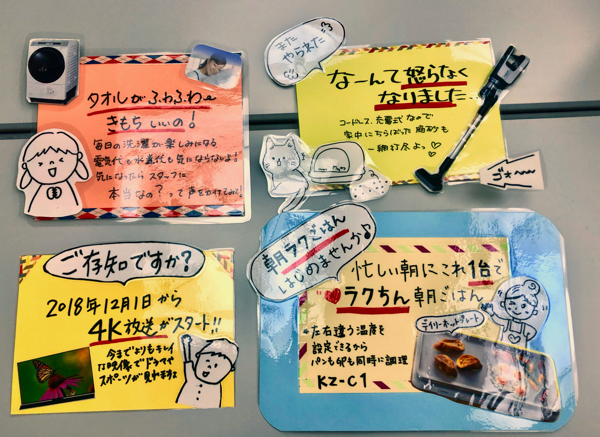 タオルがふわふわ〜
きもちいいの!
毎日の洗濯が楽しみになる
電気代も水道代も気にならないよ!
気になったら スタッフに
本当なの?って声をかけてみて!
また
やられた
なーんて怒らなく
なりました…
コードレス、充電式なので
家中にちらばった猫砂も
一網打尽よっ♡
ゴォ〜
ご存知ですか?
2018年12月1日から
4K放送がスタート!!
今までよりもキレイ
な映像でドラマや
スポーツが見れますよ
朝ラクごはん
はじめませんか♪
忙しい朝にこれ1台で
ラクちん朝ごはん
左右違う温度を
設定できるから
パンも卵も同時に調理
KZ-C1
デイリーホットプレート